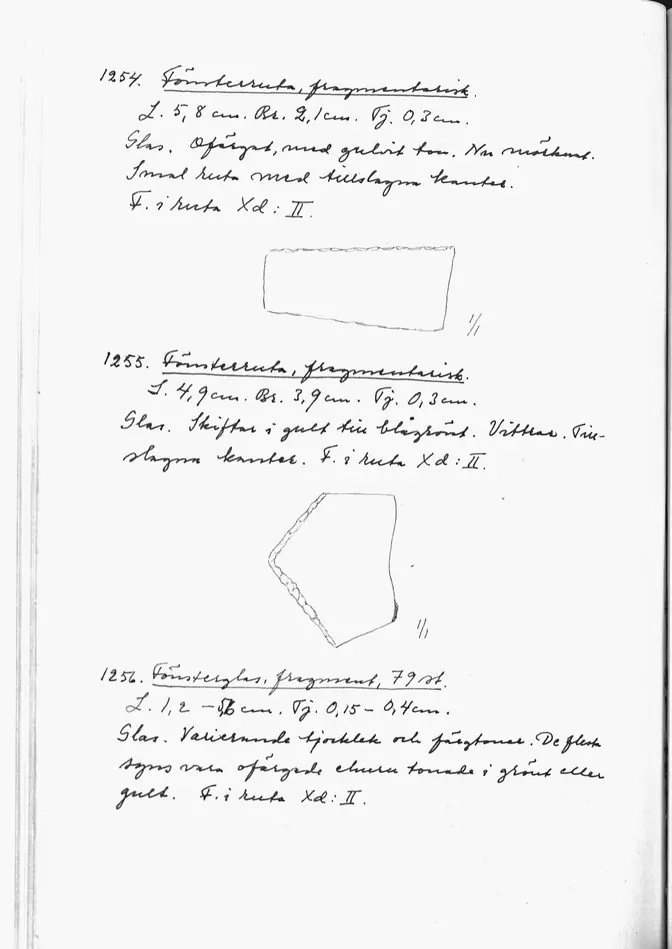 1254. Fönsterruta, fragmentarisk.
L. 5,8 cm. Br. 2,1 cm. Tj. 0,3 cm.
Glas. Ofärgat, med gulvit ton. Nu mörknat.
Smal ruta med tillslagna kanter.
F. i ruta Xd: II.
1/1
1255. Fönsterruta, fragmentarisk.
L. 4,9 cm. Br. 3,9 cm. Tj. 0,3 cm.
Glas. Skiftar i gult till blågrönt. Vittrar. Till-
slagna kanter. F. i ruta Xd: II.
1/1
1256. Fönsterglas, fragment, 79 st.
L. 1,2 – 6 cm. Tj. 0,15 – 0,4 cm.
Glas. Varierande tjocklek och färgtoner. De flesta
syns vara ofärgade eluru tonade i grönt eller
gult. F. i ruta Xd: II.